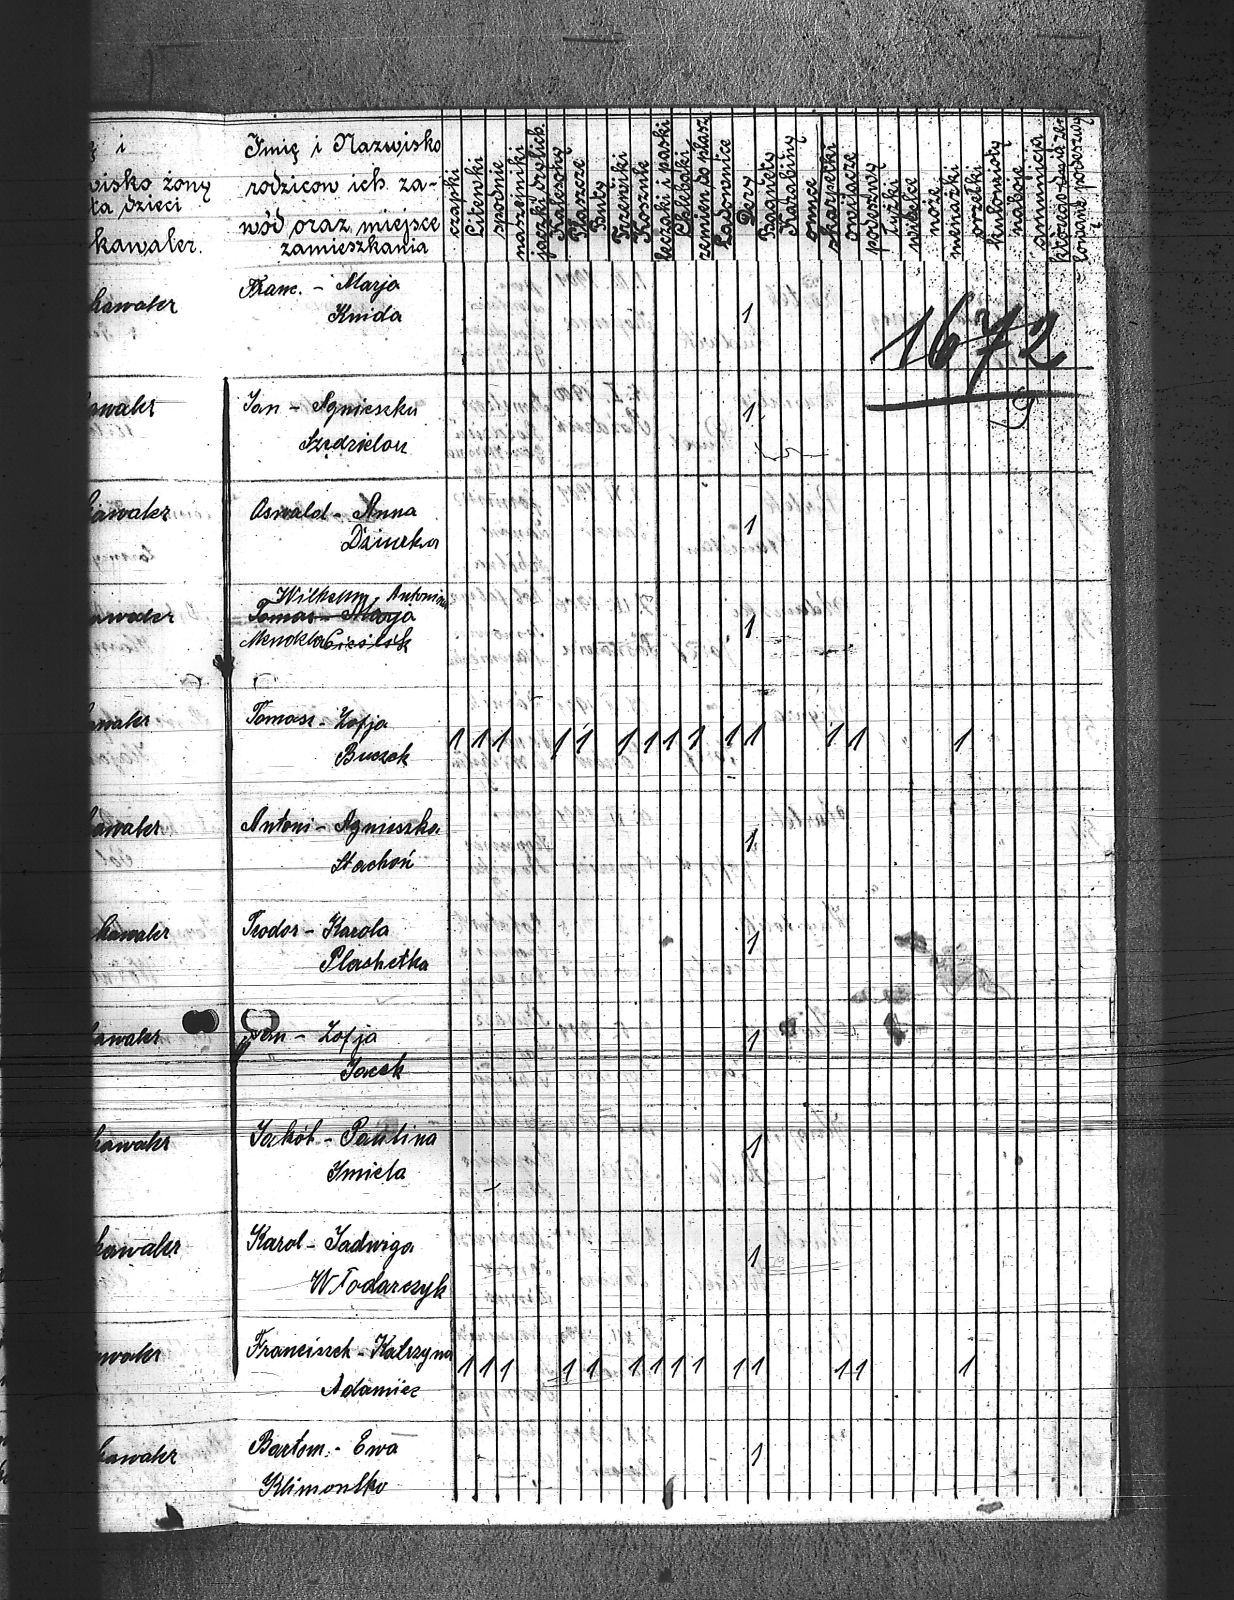 i
wisko żony
dzieci
kawaler.
Imię i Nazwisko
rodzicow ich za-
wód oraz miejsce
zamieszkania
czapki
Literwki
spodnie
naramienniki
Kalesony
Płaszcze
Buty
Trzewiki
Koszule
i paski
Chlebaki
rzemien do płasz
Ładownice
Dery
Bagnety
Karabiny
onuce
skarpetki
owijacze
podeszwy
Łyżki
widelce
noże
menażki
orzełki
naboje
amunicja
1672
kawaler
Franc. - Marja
Knida
1
kawaler
Jan - Agnieszka
Szędzielorz
1
kawaler
Oswald - Anna
Dziurka
1
Wilhelm, Antonina
kawaler
Tomasz - Marja
Mendela Cieślik
1
kawaler
Tomasz - Zofja
Buczek
1 1 1 1 1 1 1 1 1 1 1 1 1 1
kawaler
Antoni - Agnieszka
Stachoń
1
kawaler
Teodor - Karola
Plashetka
1
kawaler
Jan - Zofja
Jacek
1
kawaler
Jakób - Paulina
Imiela
1
kawaler
Karol - Jadwiga
Włodarczyk
1
kawaler
Franciszek - Katrzyna
Adamiec
1 1 1 1 1 1 1 1 1 1 1 1 1 1
kawaler
Bartom. - Ewa
Klimontko
1